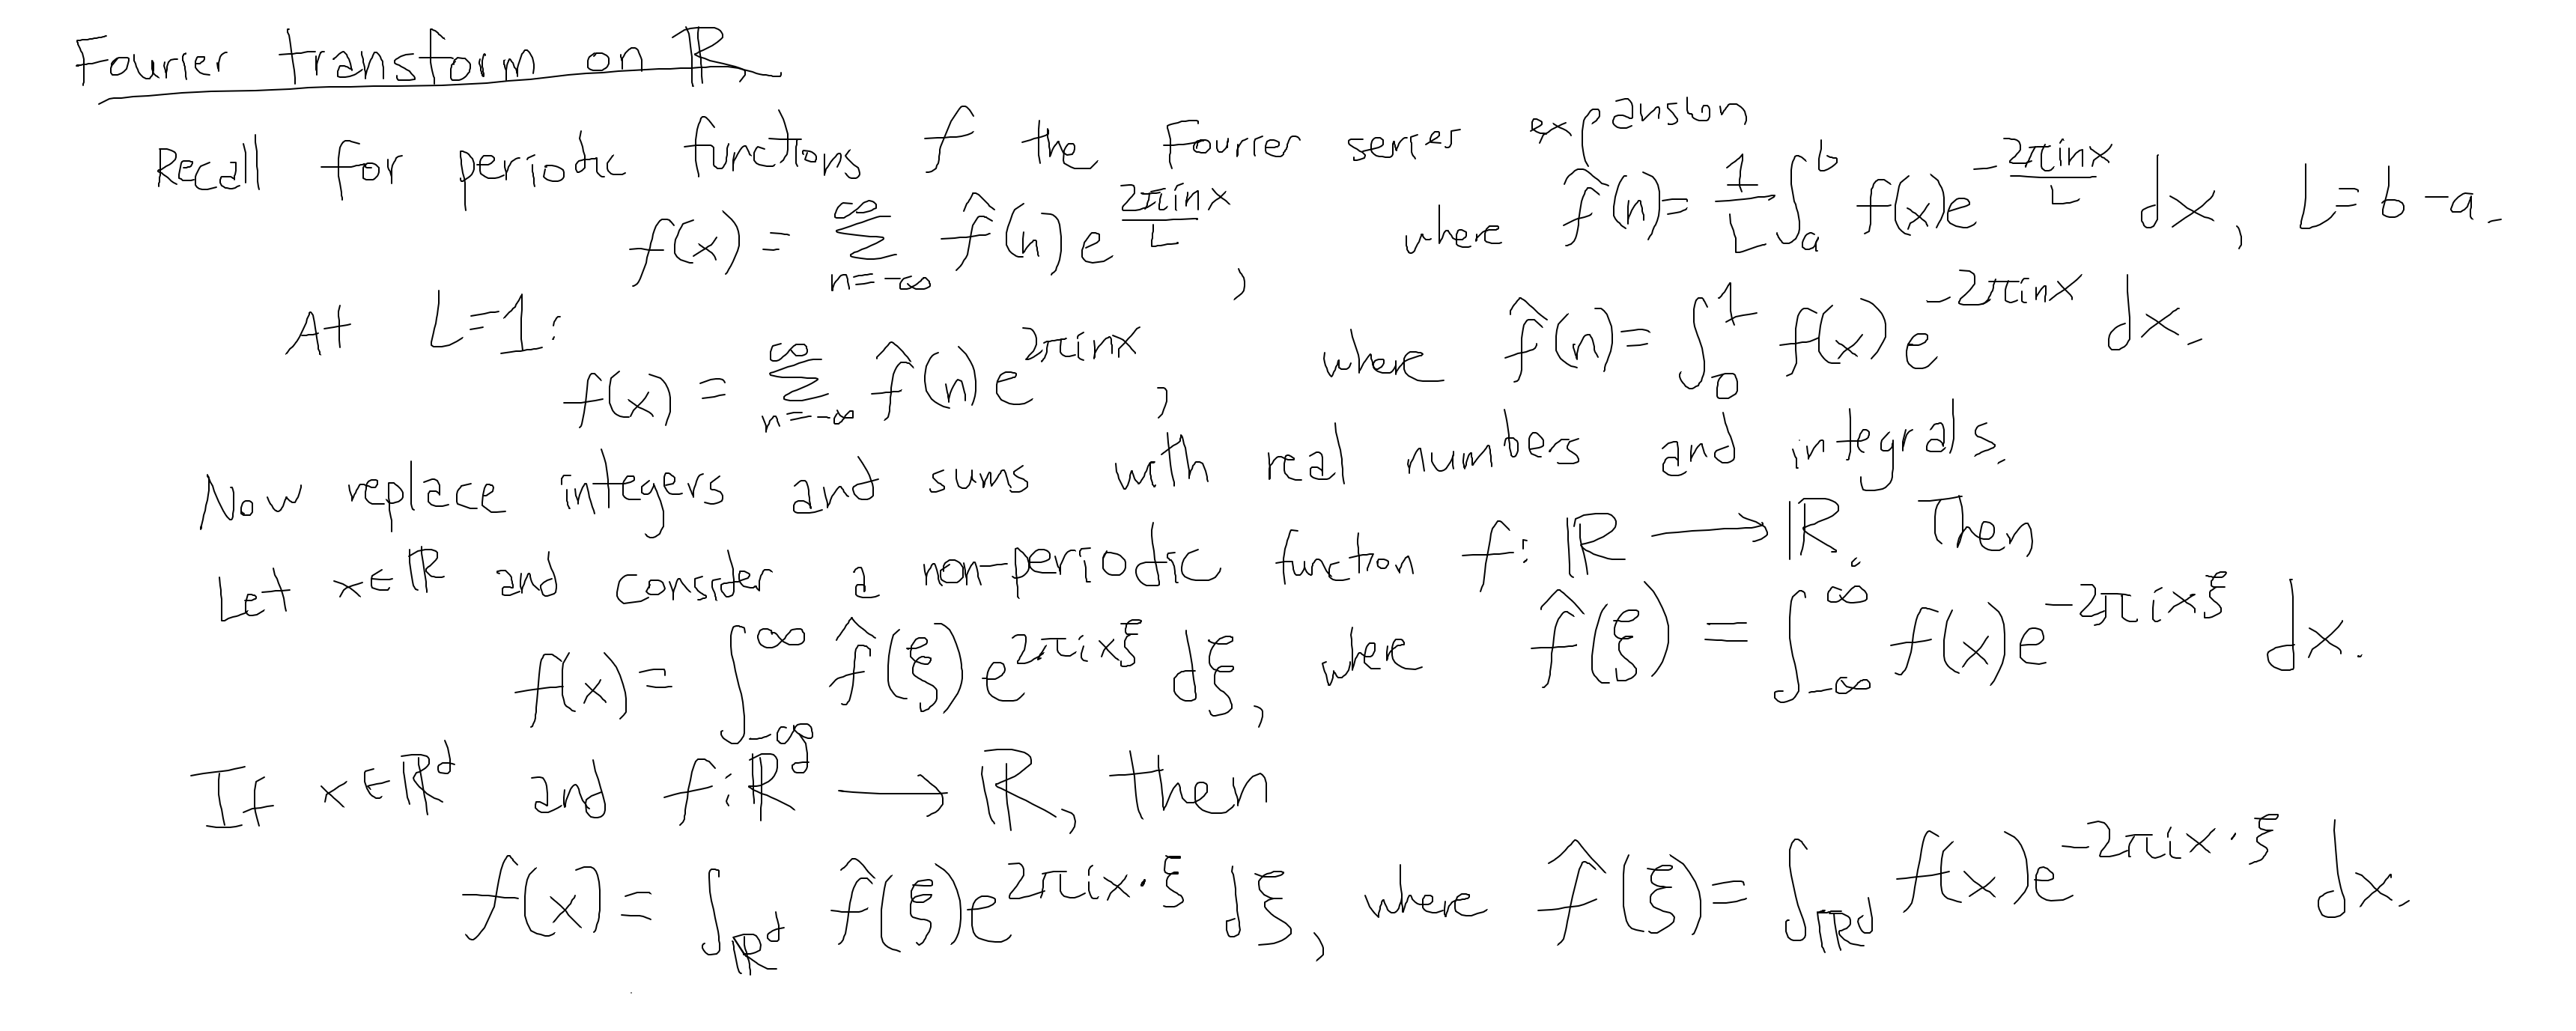 Fourier transform on ℝ.
Recall for periodic functions f the Fourier series expansion
f(x) = ∑_{n=-∞}^{∞} f̂(n) e^{2πinx/L}, where f̂(n) = 1/L ∫_a^b f(x)e^{-2πinx/L} dx, L=b-a.
At L=1:
f(x) = ∑_{n=-∞}^{∞} f̂(n) e^{2πinx}, where f̂(n) = ∫_0^1 f(x) e^{-2πinx} dx.
Now replace integers and sums with real numbers and integrals.
Let x∈ℝ and consider a non-periodic function f: ℝ ⟶ ℝ. Then
f(x) = ∫_{-∞}^{∞} f̂(ξ) e^{2πixξ} dξ, where f̂(ξ) = ∫_{-∞}^{∞} f(x)e^{-2πixξ} dx.
If x∈ℝ^d and f: ℝ^d ⟶ ℝ, then
f(x) = ∫_{ℝ^d} f̂(ξ)e^{2πix·ξ} dξ, where f̂(ξ) = ∫_{ℝ^d} f(x)e^{-2πix·ξ} dx.